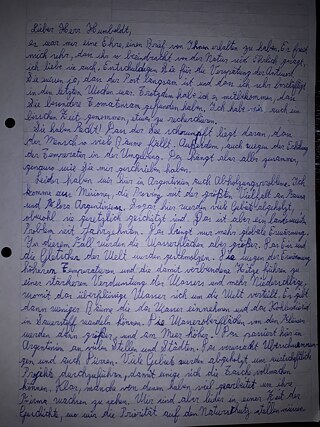 Lieber Herr Humboldt,
es war mir eine Ehre, einen Brief von Ihnen erhalten zu haben. Es freut
mich sehr, dass ihr so beeindruckt von der Natur seid. Ehrlich gesagt,
ich liebe sie auch. Entschuldigen Sie für die Verspätung der Antwort.
Sie wissen ja, dass der Post langsam ist und dass ich sehr beschäftigt
in den letzten Wochen war. Trotzdem habe ich es mitbekommen, dass
Sie besondere haben. Ich habe mir auch ein
bisschen Zeit genommen, etwas zu recherchieren.
Sie haben Recht! Der liegt daran, dass
der Mensch so viele Bäume fällt. Außerdem, auch wegen der Erhöhung
der Temperatur in der Umgebung. Das hängt aber alles zusammen,
genauso wie Sie mir geschrieben haben.
Leider haben wir hier in Argentinien auch Abholzungsprobleme. Ich
komme aus Misiones, die Provinz mit der größten Vielfalt an Fauna
und Flora Argentiniens. Sogar hier werden viele Gebiete abgeholzt,
obwohl sie gesetzlich geschützt sind. Das ist aber ein landesweites
Problem seit Jahrzehnten. Das bringt nur mehr globale Erwärmung.
In diesem Fall würden die Wasserflächen aber größer. Das Eis und
die Gletscher der Welt werden geschmolzen. Die wegen der Erwärmung
höheren Temperaturen und die damit verbundene Hitze führen zu
einer stärkeren Verdunstung des Wassers und mehr Niederschläge,
womit das überflüssige Wasser sich um die Welt verteilt. Es gibt
dann weniger Bäume die das Wasser einnehmen und das Kohlendioxid
in Sauerstoff wandeln können. Die Wasseroberflächen von den Flüssen
werden dann größer und am Meer höher. Das passiert hier in
Argentinien, an viele Ställe und Städten. Das verursacht Überschwemmun-
gen und auch Dürren. Viele Gebiete werden abgeholzt um wirtschaftliche
Projekte durchzuführen, damit einige sich die Tasche vollmachen
können. Klar, manche von denen haben viel gearbeitet um ihre
Firma wachsen zu sehen. Wir sind aber leider in einer Zeit der
Geschichte, wo wir die Priorität auf den Naturschutz stellen müssen